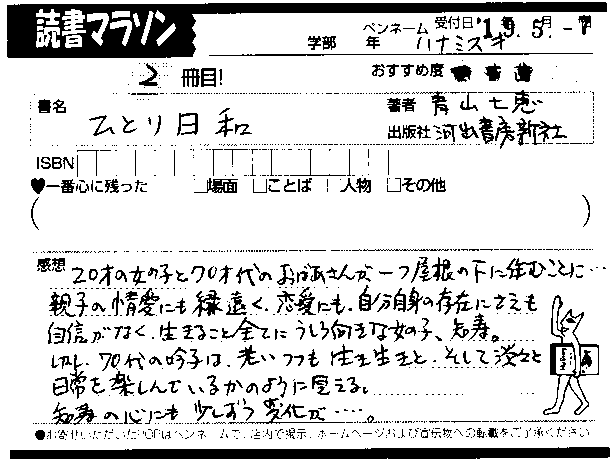 読書マラソン
学部 年 ペンネーム ハナミズキ 受付日 '19.5.-7
2 冊目!
おすすめ度
書名 ひとり日和
著者 青山七恵
出版社 河出書房新社
ISBN
♥一番心に残った □場面 □ことば □人物 □その他
( )
感想 20才の女の子と70才代のおばあさんが一つ屋根の下に住むことに…
親子の情愛にも縁遠く、恋愛にも、自分自身の存在にさえも
自信がなく、生きること全てにうしろ向きな女の子、知寿。
しかし、70代の吟子は、老いつつも生き生きと、そして淡々と
日常を楽しんでいるかのように見える。
知寿の心にも少しずつ変化が…。
●お寄せいただいたPOPはペンネームで、店内で掲示、ホームページおよび宣伝物への転載をご了承ください